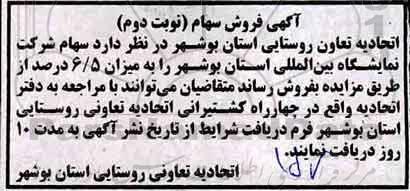 آگهی فروش سهام (نوبت دوم)
اتحادیه تعاون روستایی استان بوشهر در نظر دارد سهام شرکت
نمایشگاه بین‌المللی استان بوشهر را به میزان ۶/۵ درصد از
طریق مزایده بفروش رساند متقاضیان می‌توانند با مراجعه به دفتر
اتحادیه واقع در چهارراه کشتیرانی اتحادیه تعاونی روستایی
استان بوشهر فرم دریافت شرایط از تاریخ نشر آگهی به مدت ۱۰
روز دریافت نمایند.
اتحادیه تعاونی روستایی استان بوشهر